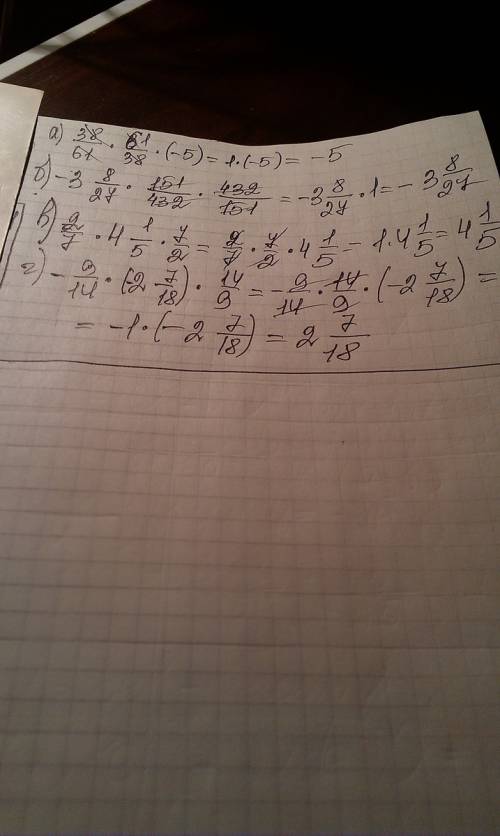 а) 38/61 · 61/38 · (-5) = 1 · (-5) = -5
б) -3 8/27 · 151/432 · 432/151 = -3 8/27 · 1 = -3 8/27
в) 2/7 · 4 1/5 · 7/2 = 2/7 · 7/2 · 4 1/5 = 1 · 4 1/5 = 4 1/5
г) -9/14 · (-2 7/18) · 14/9 = -9/14 · 14/9 · (-2 7/18) =
= -1 · (-2 7/18) = 2 7/18